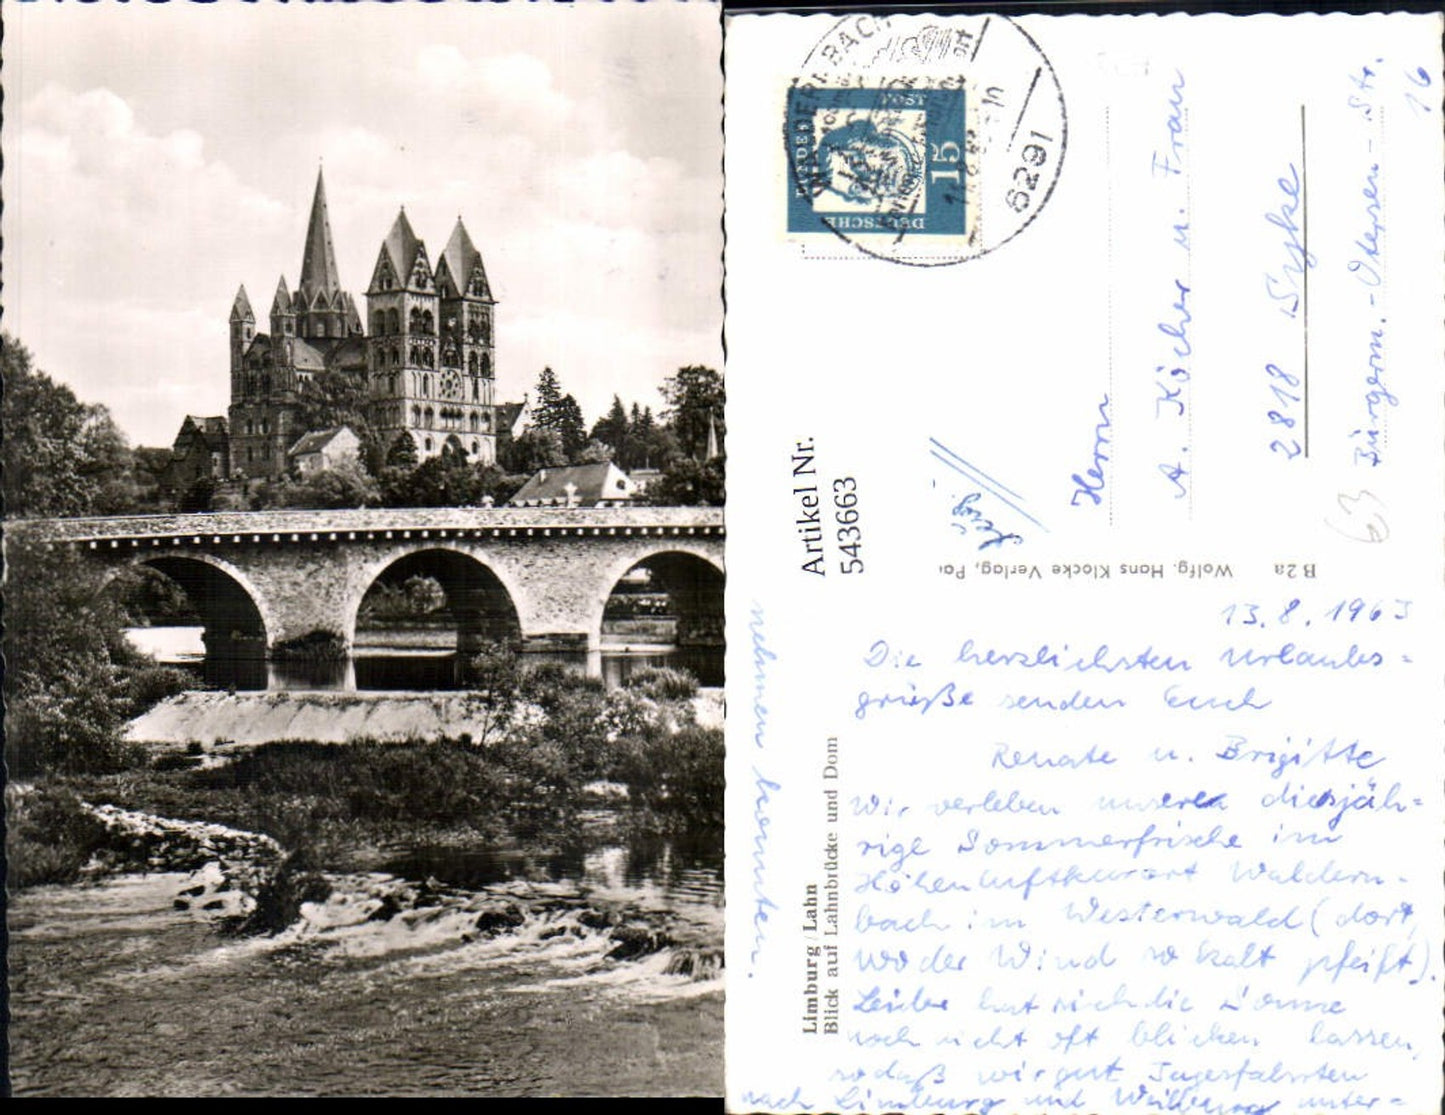 WALDERNBACH
6291
DEUTSCHE
BUNDESPOST
15
Artikel Nr.
543663
Herrn
A. Köcher u. Frau
2818 Syke
Bürgerm.-Osterсen-Str.
16
63
B 2a Wolfg. Hans Klocke Verlag, Pa
Limburg/Lahn
Blick auf Lahnbrücke und Dom
13.8.1963
Die herzlichsten Urlaubs=
grüße senden Euch
Renate u. Brigitte
Wir verleben unseren diesjäh=
rige Sommerfrische im
Höhenluftkurort Waldern-
bach im Westerwald (dort,
wo der Wind so kalt pfeift).
Leider hat sich die Sonne
noch nicht oft blicken lassen,
sodaß wir gut Tagesfahrten
nach Limburg und Weilburg unter=
nehmen konnten.